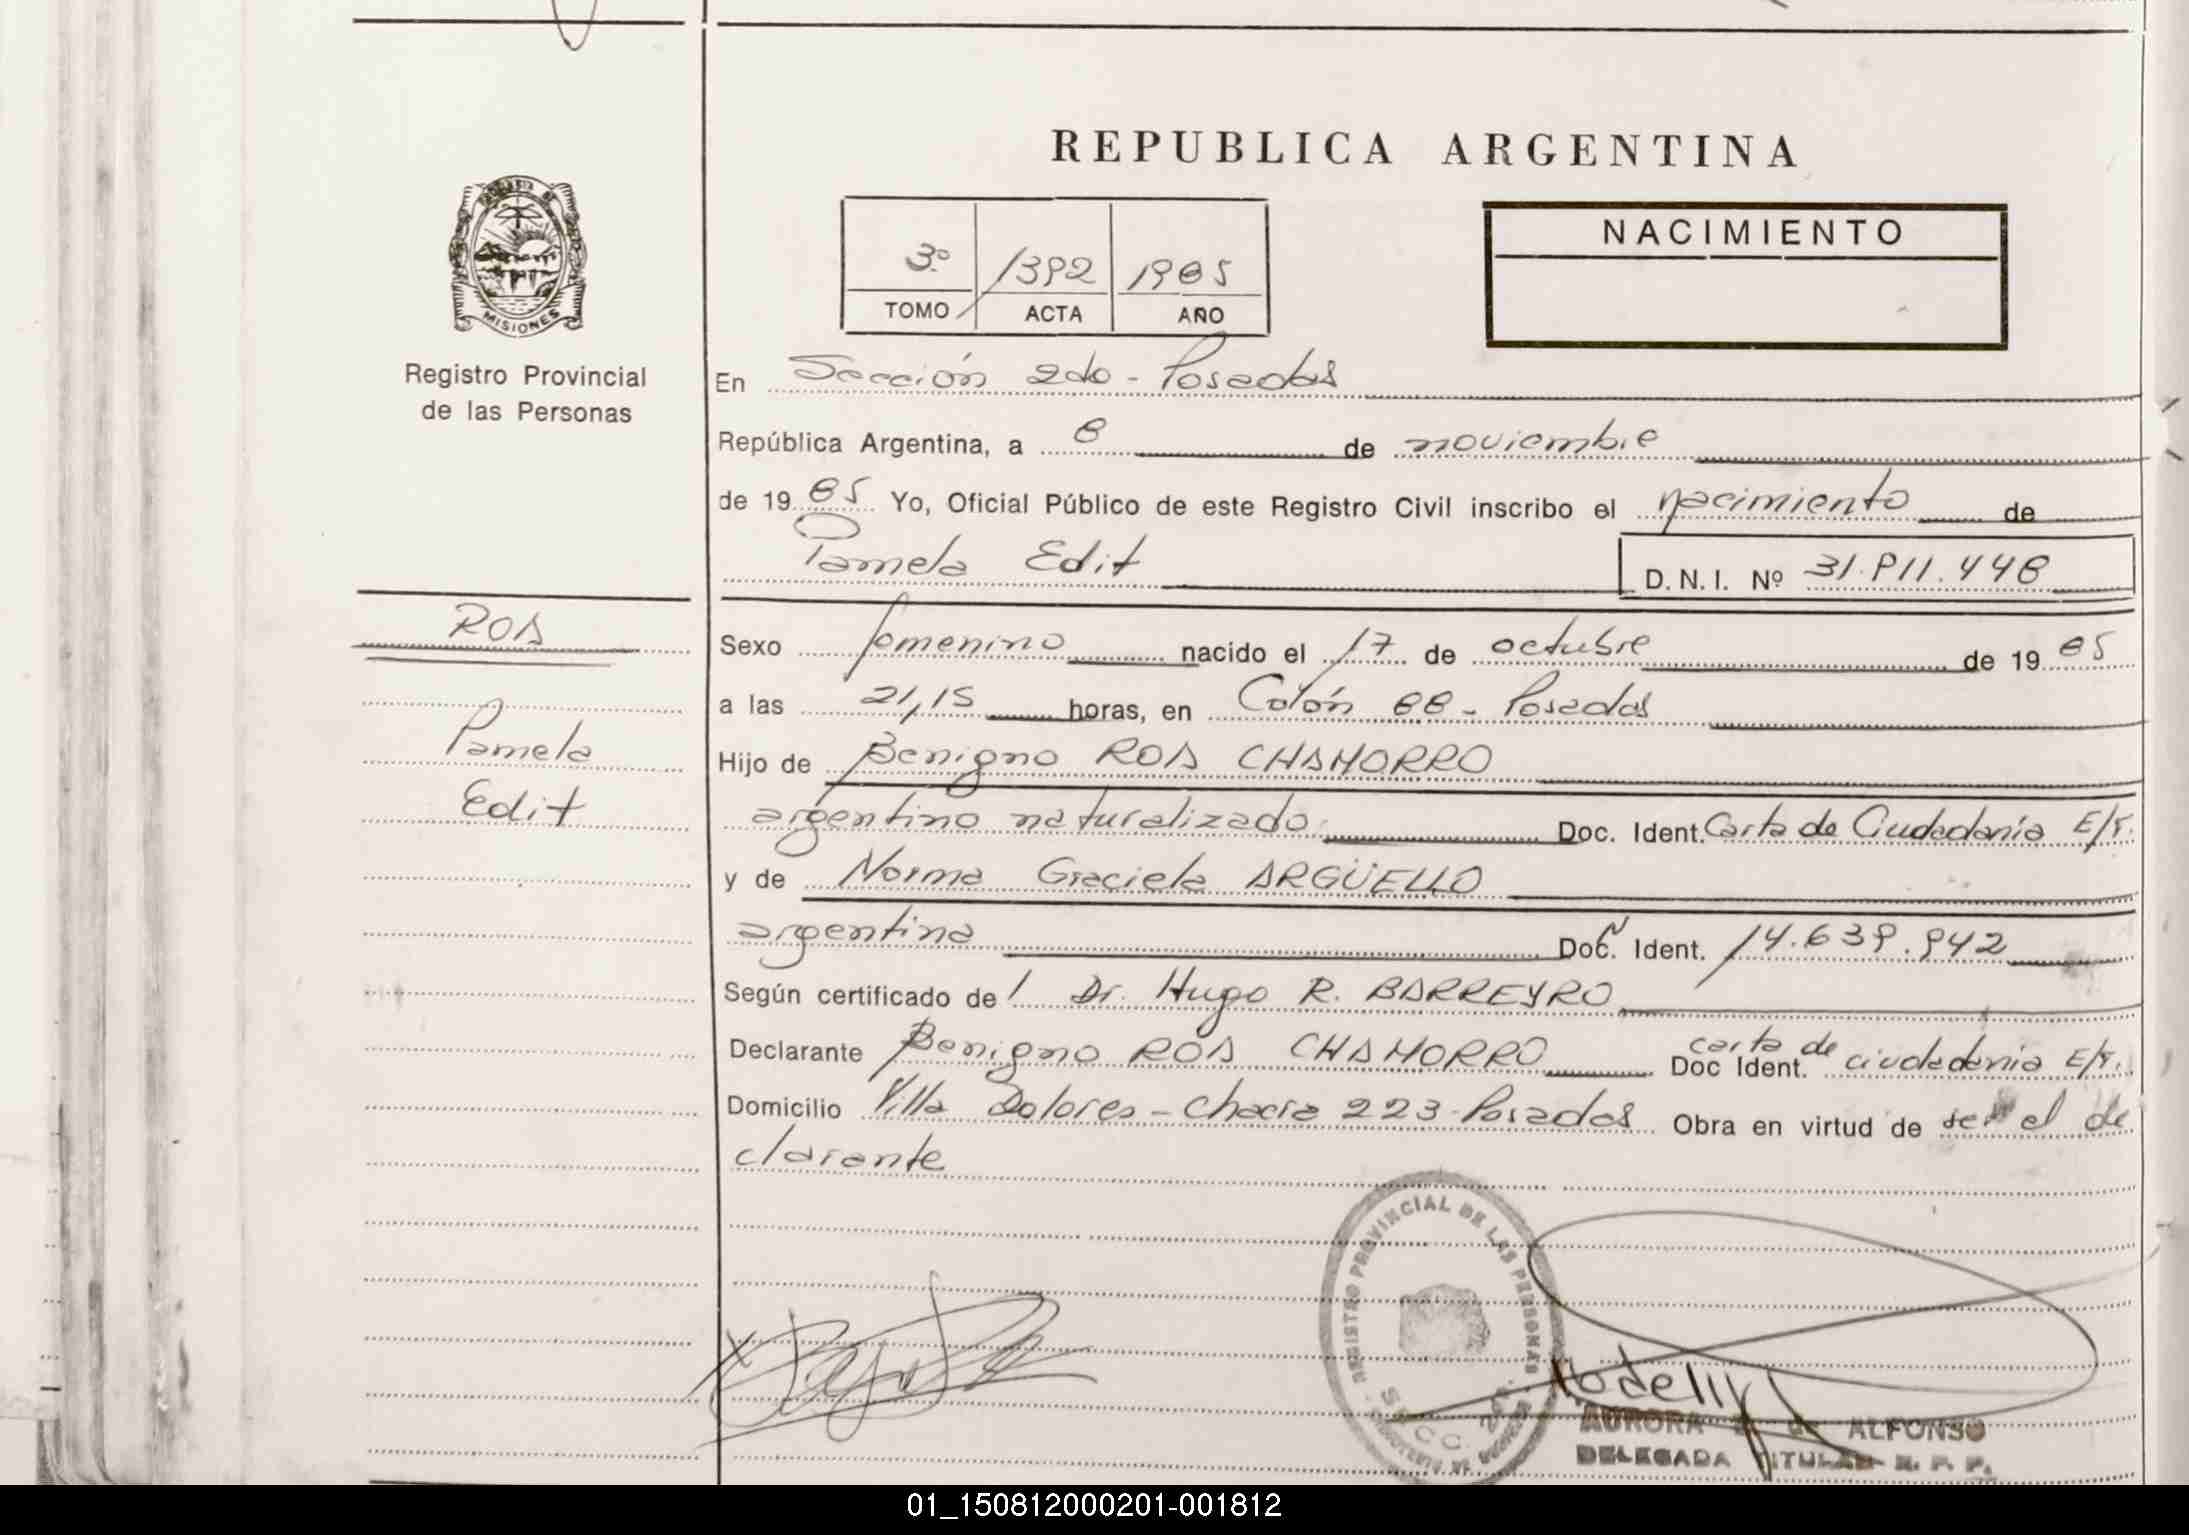 REPUBLICA ARGENTINA
MISIONES
Registro Provincial
de las Personas
3º 1392 1985
TOMO ACTA AÑO
NACIMIENTO
En Sección 2da - Posadas
República Argentina, a 8 de noviembre
de 1985 Yo, Oficial Público de este Registro Civil inscribo el nacimiento de
Pamela Edit D.N.I. Nº 31.911.448
ROA
Pamela
Edit
Sexo femenino nacido el 17 de octubre de 1985
a las 21,15 horas, en Colón 88 - Posadas
Hijo de Benigno ROA CHAMORRO
argentino naturalizado Doc. Ident. Carta de Ciudadanía E/T.
y de Norma Graciela ARGÜELLO
argentina Doc. Ident. 14.639.942
Según certificado de Dr. Hugo R. BARREYRO
Declarante Benigno ROA CHAMORRO Doc Ident. carta de ciudadania E/T.
Domicilio Villa Dolores - Chacra 223 - Posadas Obra en virtud de ser el de
clarante
REGISTRO PROVINCIAL DE LAS PERSONAS
SECC. 2da.
AURORA DE ALFONSO
DELEGADA TITULAR R. P. P.
01_150812000201-001812